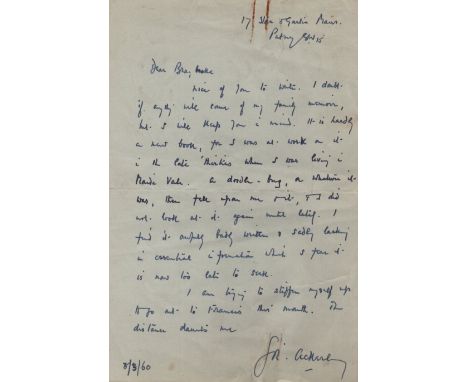 17 Star & Garter Mans.
Putney SW15
Dear Braybrooke
nice of you to write. I doubt
if anything will come of my family memoir,
but I will keep you in mind. It is hardly
a new book, for I was at work on it
in the late 'thirties when I was living in
Maida Vale. A doodle-bug, or whatever it
was, then fell upon me & it, & I did
not look at it again until lately. I
find it awfully badly written & sadly lacking
in essential information which I fear it
is now too late to seek.
I am trying to stiffen myself up
to go out to Francis this month. The
distance daunts me
Joe Ackerley
8/8/60